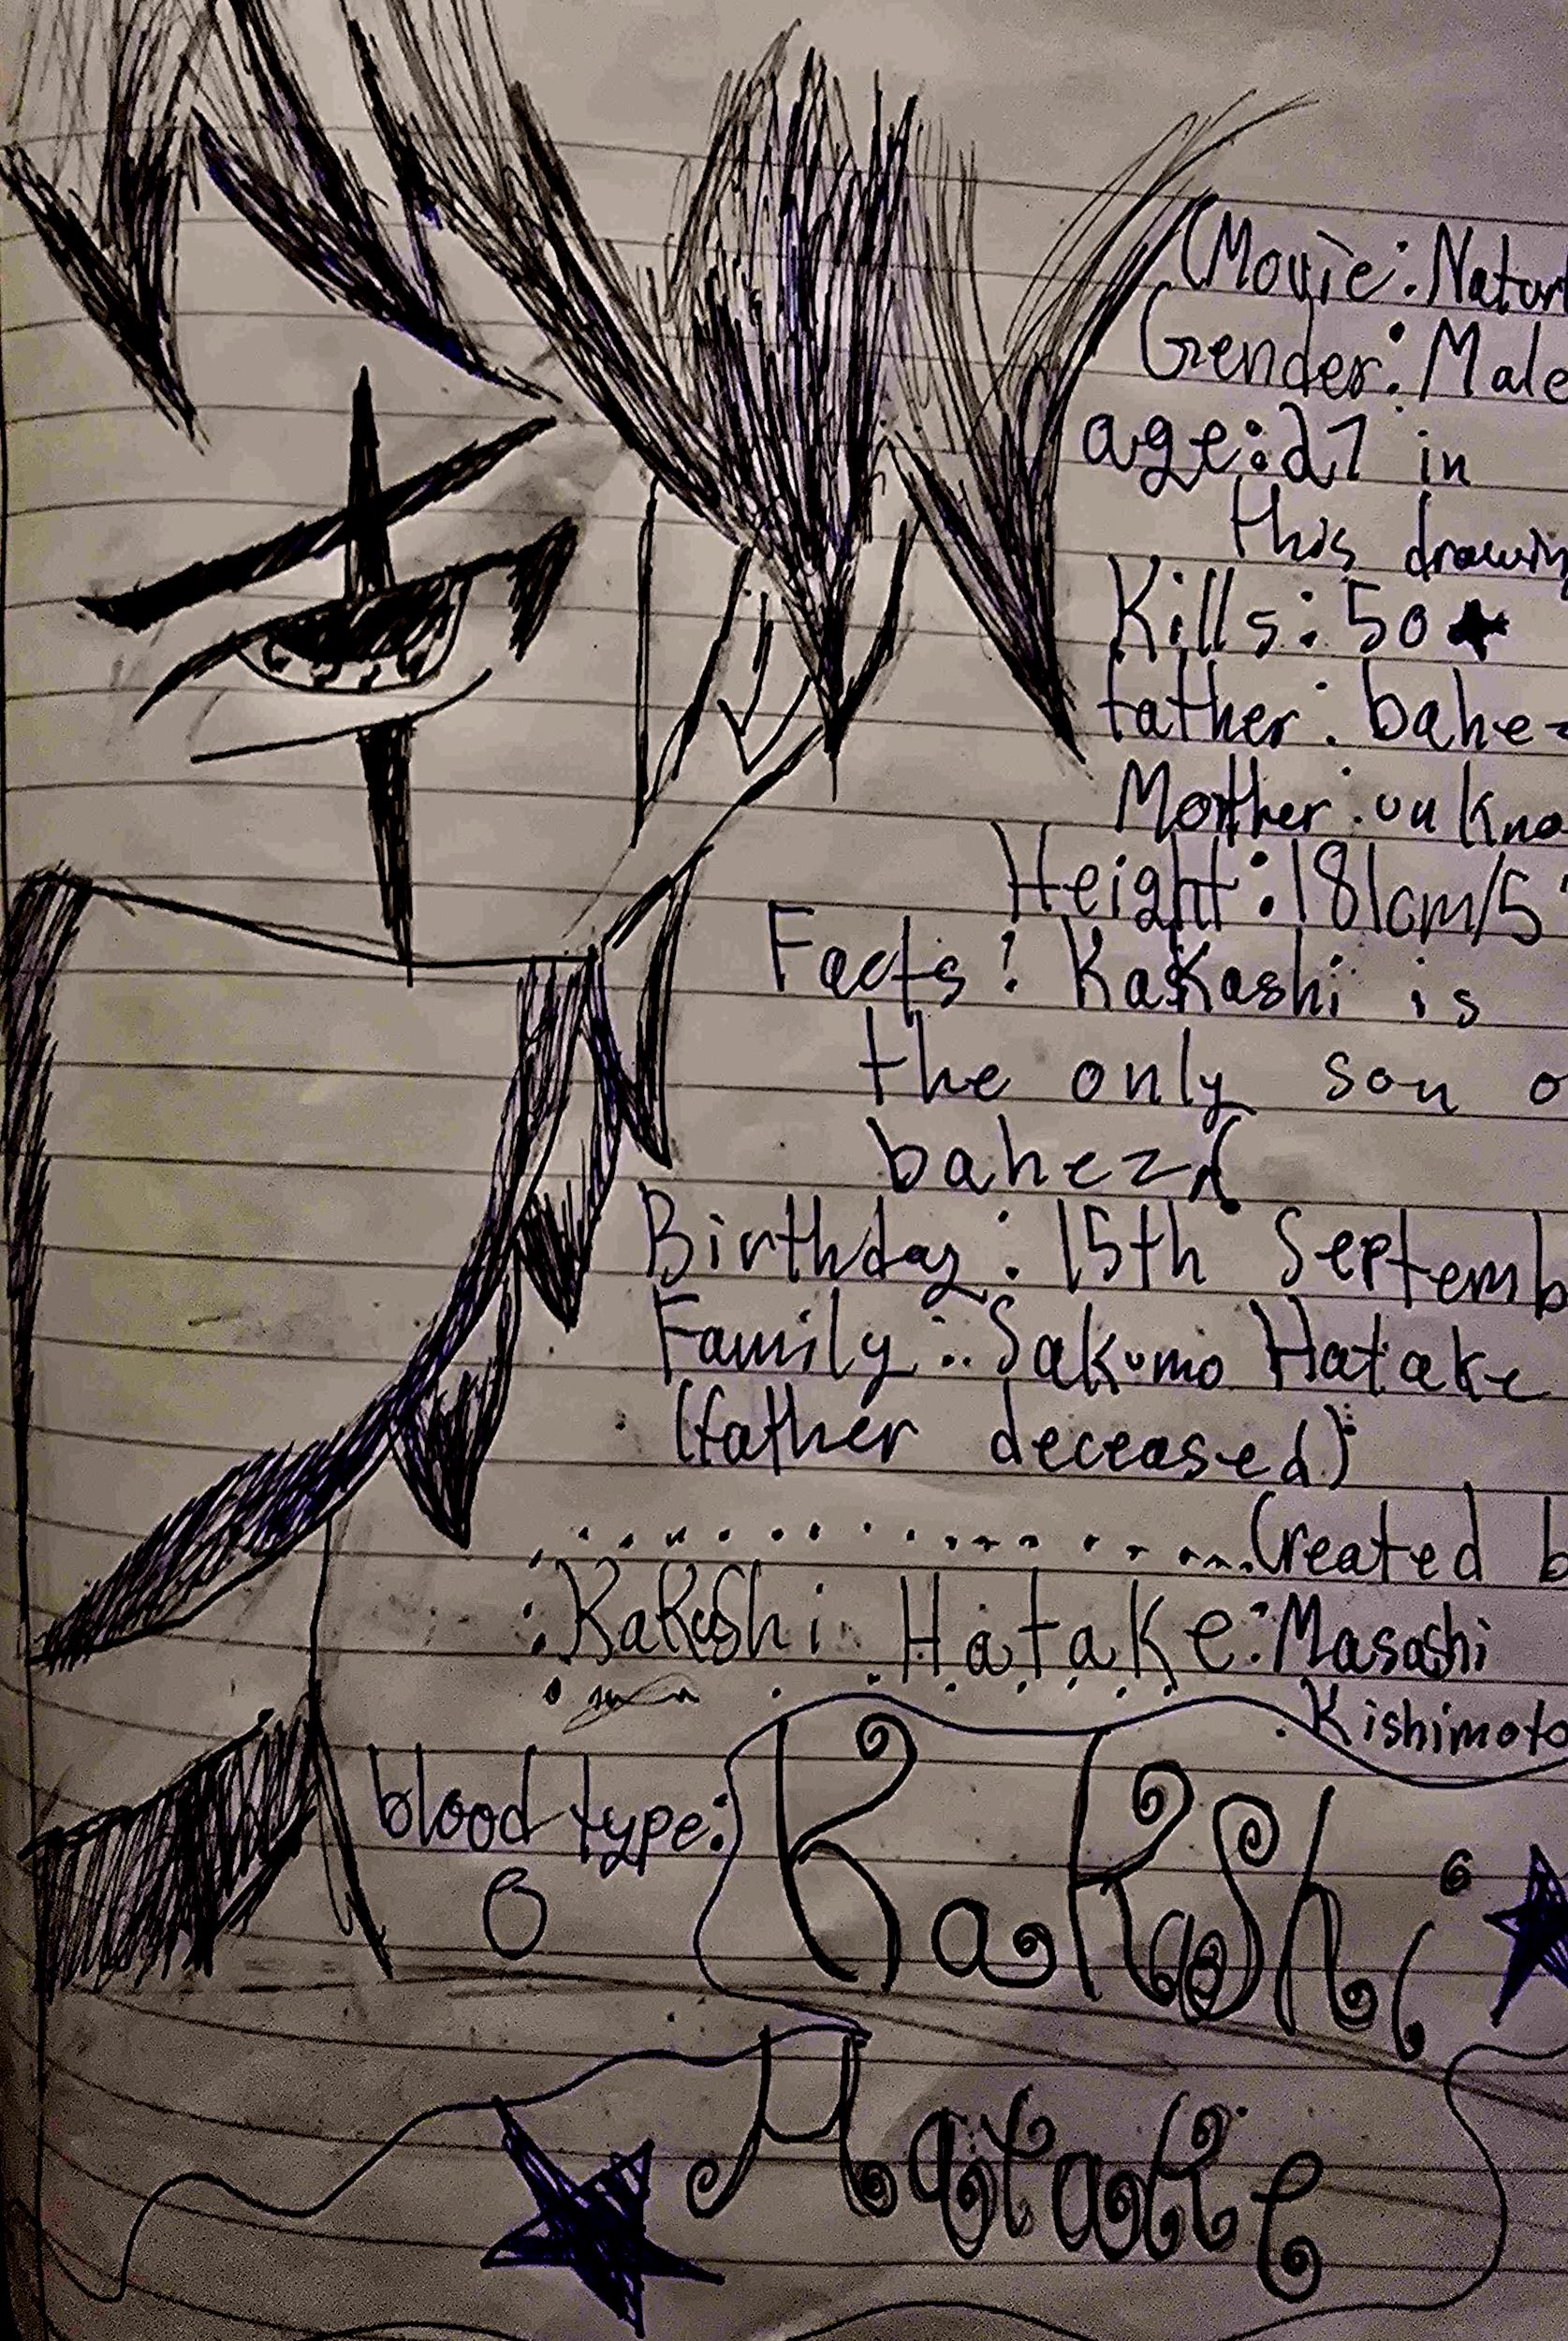 (Movie: Natur
Gender: Male
age: 27 in
this drawin
Kills: 50
father: bahe
Morther: unkno
Height: 181cm/5'
Facts: Kakashi is
the only son o
bahezd
Birthday: 15th Septemb
Family: Sakumo Hatake
(father deceased)
Created b
Kakashi Hatake: Masashi
Kishimoto
blood type:
O
Kakashi
Hatake